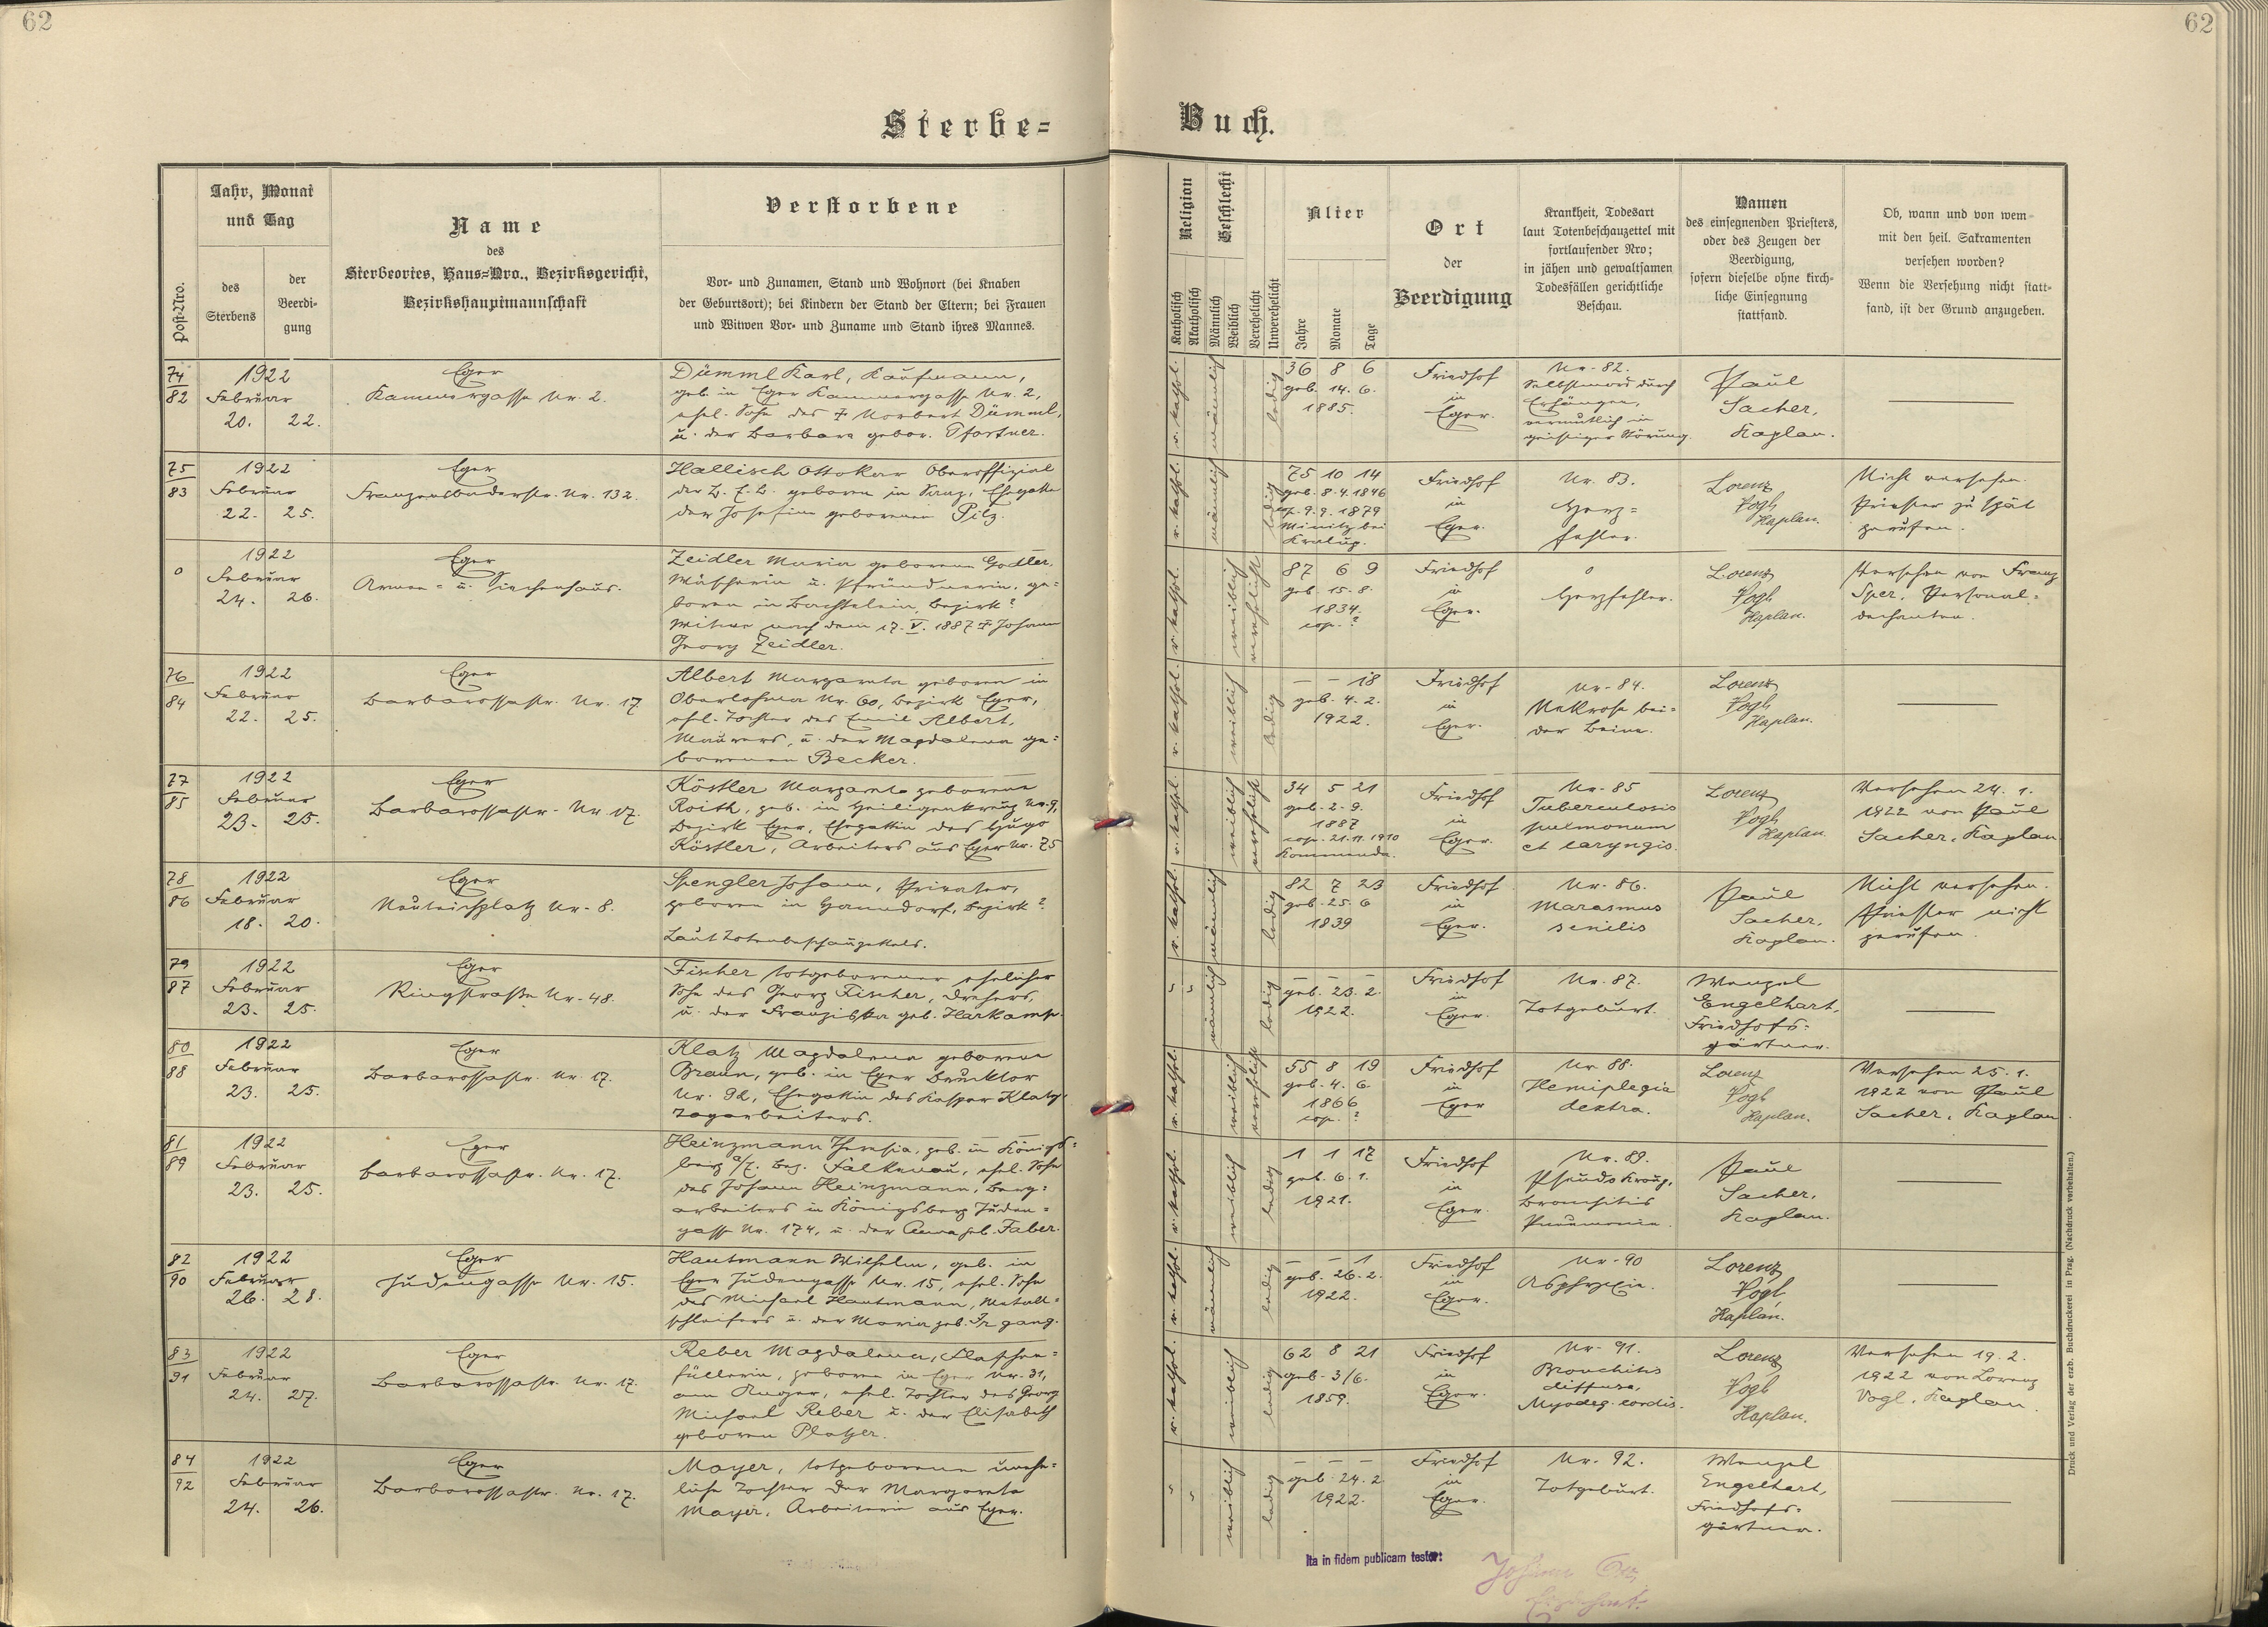 62
62
Sterbe=
Buch.
Post-Nro.
Jahr, Monat
und Tag
des
Sterbens
der
Beerdi-
gung
Name
des
Sterbeortes, Haus-Nro., Bezirksgericht,
Bezirkshauptmannschaft
Verstorbene
Vor- und Zunamen, Stand und Wohnort (bei Knaben
der Geburtsort); bei Kindern der Stand der Eltern; bei Frauen
und Witwen Vor- und Zuname und Stand ihres Mannes.
Religion
Katholisch
Akatholisch
Geschlecht
Männlich
Weiblich
Verehelicht
Unverehelicht
Alter
Jahre
Monate
Tage
Ort
der
Beerdigung
Krankheit, Todesart
laut Totenbeschauzettel mit
fortlaufender Nro;
in jähen und gewaltsamen
Todesfällen gerichtliche
Beschau.
Namen
des einsegnenden Priesters,
oder des Zeugen der
Beerdigung,
sofern dieselbe ohne kirch-
liche Einsegnung
stattfand.
Ob, wann und von wem
mit den heil. Sakramenten
versehen worden?
Wenn die Versehung nicht statt-
fand, ist der Grund anzugeben.
74
82
1922
Februar
20. 22.
Eger
Kammergasse Nr. 2.
Dümml Karl, Kaufmann,
geb. in Eger Kammergasse Nr. 2,
ehel. Sohn des † Norbert Dümml,
u. der Barbara gebor. Pfortner.
r. kathol.
männlich
ledig
36 8 6
geb. 14. 6.
1885.
Friedhof
in
Eger.
Nr. 82.
Selbstmord durch
Erhängen,
vermutlich in
geistiger Störung.
Paul
Sacher,
Kaplan.
75
83
1922
Februar
22. 25.
Eger
Franzensbaderstr. Nr. 132.
Hallisch Ottokar Oberoffizial
der B. E. B. geboren in Saaz, Ehegatte
der Josefine geborenen Pilz.
r. kathol.
männlich
ledig
75 10 14
geb. 8. 4. 1846
cop. 9. 9. 1879
Minitz bei
Kralup.
Friedhof
in
Eger.
Nr. 83.
Herz=
fehler.
Lorenz
Vogl
Kaplan.
Nicht versehen.
Priester zu spät
gerufen.
0
1922
Februar
24. 26.
Eger
Armen= u. Siechenhaus.
Zeidler Maria geborene Godler,
Wäscherin u. Pfründnerin, ge=
boren in Bachtelein, Bezirk?
Witwe nach dem 17. V. 1887 † Johann
Georg Zeidler.
r. kathol.
weiblich
verehelicht
87 6 9
geb. 15. 8.
1834.
cop. ?
Friedhof
in
Eger.
0
Herzfehler.
Lorenz
Vogl
Kaplan.
Versehen von Franz
Sper, Personal=
dechanten.
76
84
1922
Februar
22. 25.
Eger
Barbarossastr. Nr. 17
Albert Margareta geboren in
Oberlohma Nr. 60, Bezirk Eger,
ehel. Tochter des Emil Albert,
Maurers, u. der Magdalena ge=
borenen Becker.
r. kathol.
weiblich
ledig
– – 18
geb. 4. 2.
1922.
Friedhof
in
Eger.
Nr. 84.
Nekrose bei=
der Beine.
Lorenz
Vogl
Kaplan.
77
85
1922
Februar
23. 25.
Eger
Barbarossastr. Nr 17.
Köstler Margareta geborene
Roith, geb. in Heiligenkreuz Nr. 9,
Bezirk Eger, Ehegattin des Hugo
Köstler, Arbeiters aus Eger Nr. 75
r. kathol.
weiblich
verehelicht
34 5 21
geb. 2. 9.
1887
cop. 21. 11. 1910
Kommenda.
Friedhof
in
Eger.
Nr. 85
Tuberculosis
pulmonum
et laryngis.
Lorenz
Vogl
Kaplan.
Versehen 24. 1.
1922 von Paul
Sacher, Kaplan
78
86
1922
Februar
18. 20.
Eger
Neuteichplatz Nr. 8.
Spengler Johann, Privater,
geboren in Honndorf, Bezirk?
Laut Totenbeschauzettels.
r. kathol.
männlich
ledig
82 7 23
geb. 25. 6
1839
Friedhof
in
Eger.
Nr. 86.
Marasmus
senilis
Paul
Sacher,
Kaplan.
Nicht versehen.
Priester nicht
gerufen.
79
87
1922
Februar
23. 25.
Eger
Ringstraße Nr. 48.
Fischer totgeborener ehelicher
Sohn des Georg Fischer, Drehers,
u. der Franziska geb. Harkamp.
männlich
ledig
– – –
geb. 23. 2.
1922.
Friedhof
in
Eger.
Nr. 87.
Totgeburt.
Wenzel
Engelhart,
Friedhofs=
gärtner.
80
88
1922
Februar
23. 25.
Eger
Barbarossastr. Nr. 17.
Klatz Magdalena geborene
Braun, geb. in Eger Brucktor
Nr. 92, Ehegattin des Kaspar Klatz
Tagarbeiters.
r. kathol.
weiblich
verehelicht
55 8 19
geb. 4. 6.
1866
cop. ?
Friedhof
in
Eger
Nr. 88.
Hemiplegia
dextra.
Lorenz
Vogl
Kaplan.
Versehen 25. 1.
1922 von Paul
Sacher, Kaplan.
81
89
1922
Februar
23. 25.
Eger
Barbarossastr. Nr. 17.
Heinzmann Theresia, geb. in Königs=
berg a/E. Bez. Falkenau, ehel. Sohn
des Johann Heinzmann, Berg=
arbeiters in Königsberg Juden=
gasse Nr. 174, u. der Anna geb. Faber.
r. kathol.
weiblich
ledig
1 1 17
geb. 6. 1.
1921.
Friedhof
in
Eger.
Nr. 89.
Pseudo Kroup,
Bronchitis
Pneumonie.
Paul
Sacher,
Kaplan.
82
90
1922
Februar
26. 28.
Eger
Judengasse Nr. 15.
Hautmann Wilhelm, geb. in
Eger Judengasse Nr. 15, ehel. Sohn
des Michael Hautmann, Metall=
schleifers u. der Maria geb. Irgang.
r. kathol.
männlich
ledig
– – 1
geb. 26. 2.
1922.
Friedhof
in
Eger.
Nr. 90
Asphyxie.
Lorenz
Vogl
Kaplan.
83
91
1922
Februar
24. 27.
Eger
Barbarossastr. Nr. 17.
Reber Magdalena, Flaschen=
füllerin, geboren in Eger Nr. 31,
am Anger, ehel. Tochter des Georg
Michael Reber u. der Elisabeth
geboren Platzer.
r. kathol.
weiblich
ledig
62 8 21
geb. 3/6.
1859.
Friedhof
in
Eger.
Nr. 91.
Bronchitis
diffusa,
Myodeg. cordis.
Lorenz
Vogl
Kaplan.
Versehen 19. 2.
1922 von Lorenz
Vogl, Kaplan.
84
92
1922
Februar
24. 26.
Eger
Barbarossastr. Nr. 17.
Mayer, totgeborene unehe=
liche Tochter der Margareta
Mayer, Arbeiterin aus Eger.
weiblich
ledig
– – –
geb. 24. 2
1922.
Friedhof
in
Eger.
Nr. 92.
Totgeburt.
Wenzel
Engelhart,
Friedhofs=
gärtner.
Ita in fidem publicam testor:
Johann
Druck und Verlag der erzb. Buchdruckerei in Prag. (Nachdruck verbehalten.)